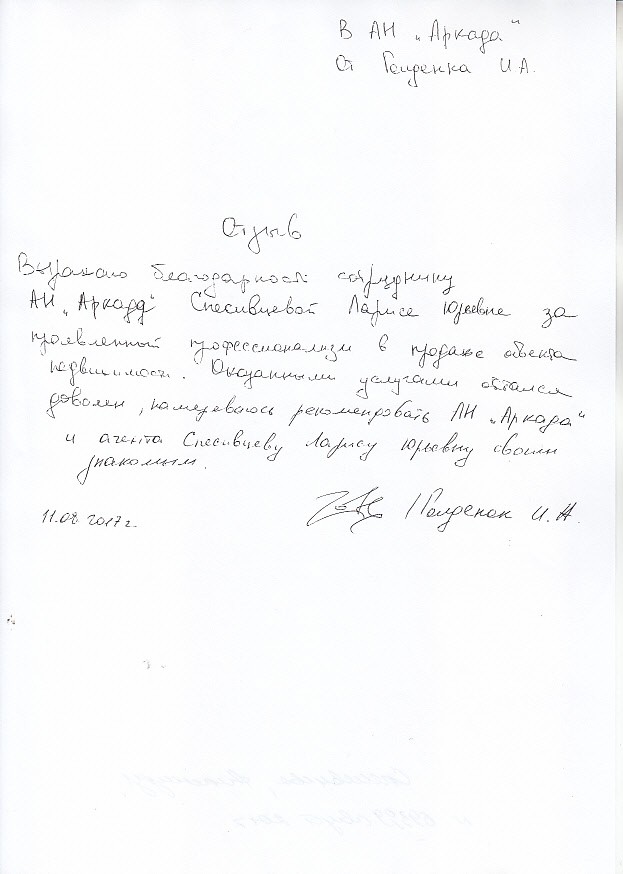 В АН „Аркада"
От Голденка И.А.
Отзыв
Выражаю благодарность сотруднику
АН „Аркада" Спесивцевой Ларисе Юрьевне за
проявленный профессионализм в продаже объекта
недвижимости. Оказанными услугами остался
доволен, намереваюсь рекомендовать АН „Аркада"
и агента Спесивцеву Ларису Юрьевну своим
знакомым.
11.08.2017г. И.А.